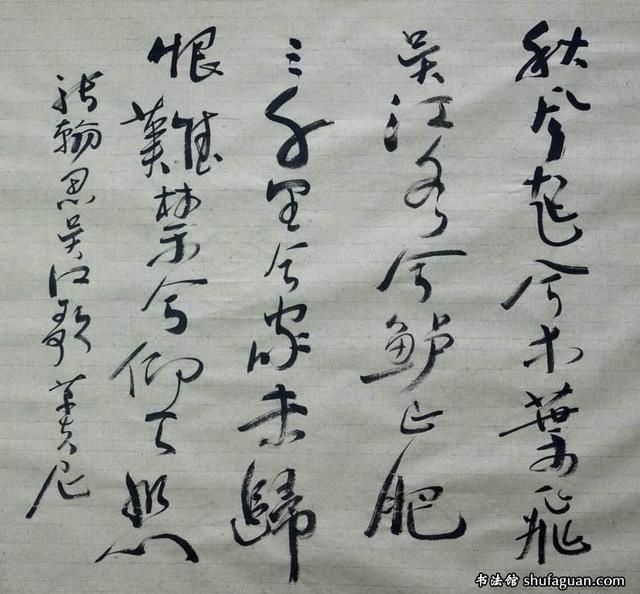 秋风起兮木葉飛
吴江水兮鲈正肥
三千里兮家未歸
恨難禁兮仰天悲
張翰思吴江歌
书法馆 shufaguan.com